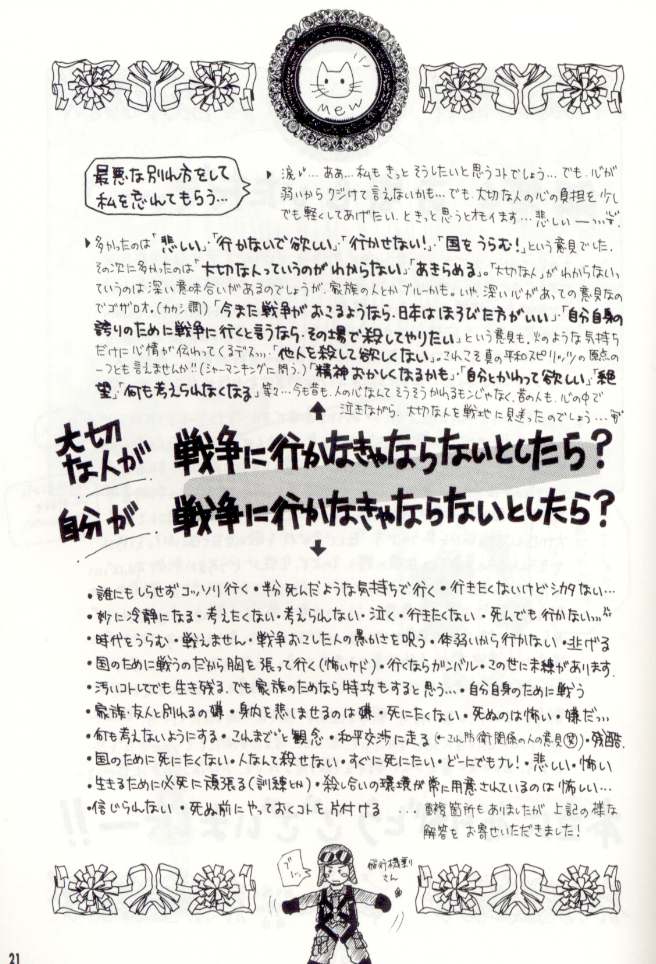 mew
最悪な別れ方をして
私を忘れてもらう…
涙…ああ…私もきっとそうしたいと思うコトでしょう…でも、心が
弱いからクジけて言えないかも…でも、大切な人の心の負担を少し
でも軽くしてあげたい、ときっと思うとオモイます…悲しい
多かったのは「悲しい」・「行かないで欲しい」・「行かせない!」・「国をうらむ!」という意見でした。
その次に多かったのは「大切な人っていうのがわからない」「あきらめる」。「大切な人」がわからないっ
ていうのは深い意味合いがあるのでしょうが、家族の人とかブルーかも。いや、深い心があっての意見なの
でゴザロオ。(カカシ調)「今また戦争がおこるようなら、日本はほろびた方がいい」・「自分自身の
誇りのために戦争に行くと言うなら、その場で殺してやりたい」という意見も。火のような気持ち
だけに心情が伝わってくるデス…、「他人を殺して欲しくない」。これこそ真の平和スピリッツの原点の
一つとも言えませんか!!(シャーマンキングに問う。)「精神おかしくなるかも」・「自分とかわって欲しい」「絶
望」「何も考えられなくなる」等々…今も昔も、人の心なんてそうそうかわるモンじゃなく、昔の人も、心の中で
泣きながら、大切な人を戦地に見送ったのでしょう…
大切
な人が 戦争に行かなきゃならないとしたら?
自分が 戦争に行かなきゃならないとしたら?
・誰にもしらせずコッソリ行く・半分死んだような気持ちで行く・行きたくないけどシカタない…
・妙に冷静になる・考えたくない・考えられない・泣く・行きたくない・死んでも行かない…
・時代をうらむ・戦えません・戦争おこした人の愚かさを呪う・体弱いから行かない・逃げる
・国のために戦うのだから胸を張って行く(怖いケド)・行くならガンバル・この世に未練があります。
・汚いコトしてでも生き残る、でも家族のためなら特攻もすると思う…・自分自身のために戦う
・家族・友人と別れるの嫌・身内を悲しませるのは嫌・死にたくない・死ぬのは怖い・嫌だ…
・何も考えないようにする・これまで"と観念・和平交渉に走る(←これ防衛関係の人の意見(笑)・残酷
・国のために死にたくない・人なんて殺せない・すぐに死にたい・どーにでもナレ!・悲しい・怖い
・生きるために必死に頑張る(訓練とか)・殺し合いの環境が常に用意されているのは怖い…
・信じられない・死ぬ前にやっておくコトを片付ける …重複箇所もありましたが、上記の様な
解答をお寄せいただきました!
飛行機乗り
さん
21